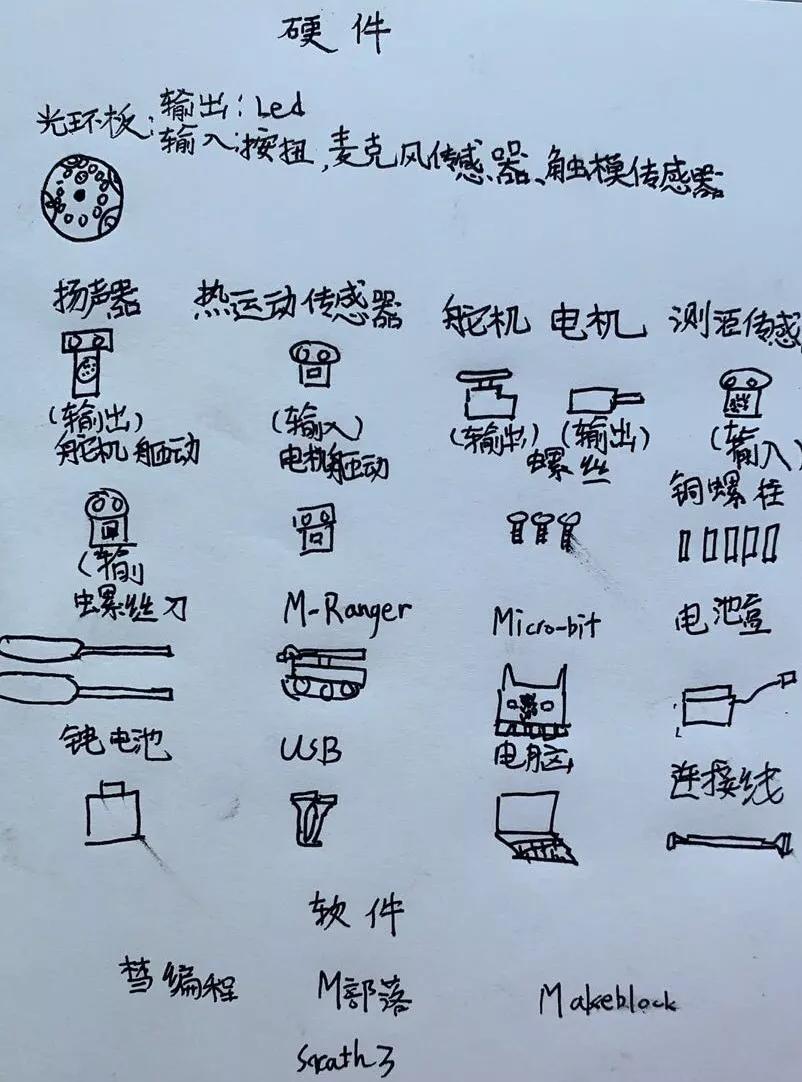 硬件
光环板:输出:Led
输入:按扭,麦克风传感器、触模传感器
扬声器 热运动传感器 舵机 电机 测酒传感
(输出) (输入) (输出) (输出) (输入)
舵机驱动 电机驱动 螺丝 铜螺柱
(输
螺丝刀 M-Ranger Micro-bit 电池盒
锂电池 USB 电脑 连接线
软件
慧编程 M部落 Makeblock
Scrath3